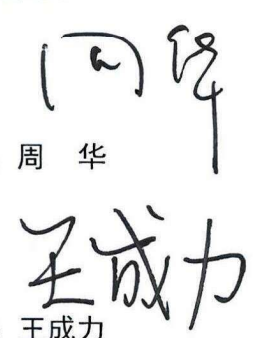 周华
周 华
王成力
王成力